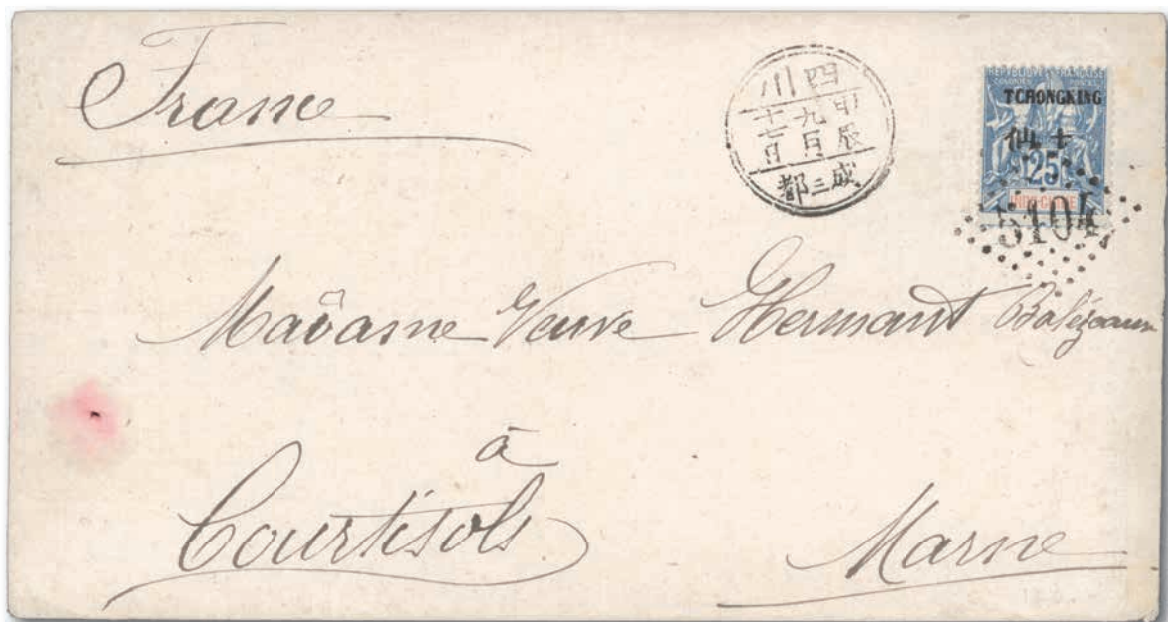 France
四川
甲辰
九月
十七日
成三都
REPUBLIQUE FRANCAISE
TCHONGKING
仙十
25
INDO-CHINE
5104
Madame Veuve Hermant
à
Courtisols
Marne